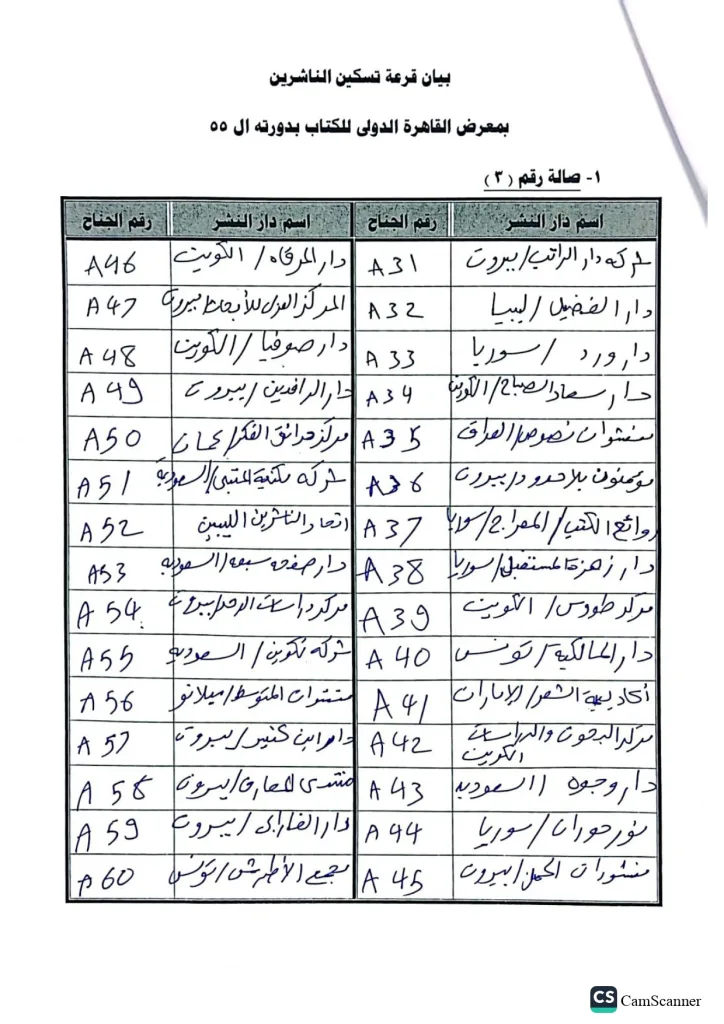 بيان قرعة تسكين الناشرين
بمعرض القاهرة الدولى للكتاب بدورته ال ٥٥
١- صالة رقم (٣)
اسم دار النشر رقم الجناح اسم دار النشر رقم الجناح
شركه دار الراتب/بيروت A31 دار المرقاه/الكويت A46
دار الفضيل/ليبيا A32 المركز العربى للأبحاث بيروت A47
دار ورد/سوريا A33 دار صوفيا/الكويت A48
دار سعاد الصباح/الكويت A34 دار الرافدين/بيروت A49
منشورات نصوص/العراق A35 مركز حدائق الفكر/عمان A50
مؤمنون بلا حدود/بيروت A36 شركه مكتبة المتنبى/السعوديه A51
روائع الكتب/المعراج/سوريا A37 اتحاد الناشرين الليبيين A52
دار زهرة المستقبل/سوريا A38 دار صفحه سبعه/السعوديه A53
مركز طروس/الكويت A39 مركز دراسات الوحدة/بيروت A54
دار المالكية/تونس A40 شركه تكوين/السعوديه A55
أكاديمية الشعر/الإمارات A41 منشورات المتوسط/ميلانو A56
مركز البحوث والدراسات A42 دار ابن كثير/بيروت A57
الكويت
دار وجوه/السعوديه A43 منتدى المعارف/بيروت A58
نور حوران/سوريا A44 دار الفارابى/بيروت A59
منشورات الجمل/بيروت A45 مجمع الأطرش/تونس A60
CS CamScanner